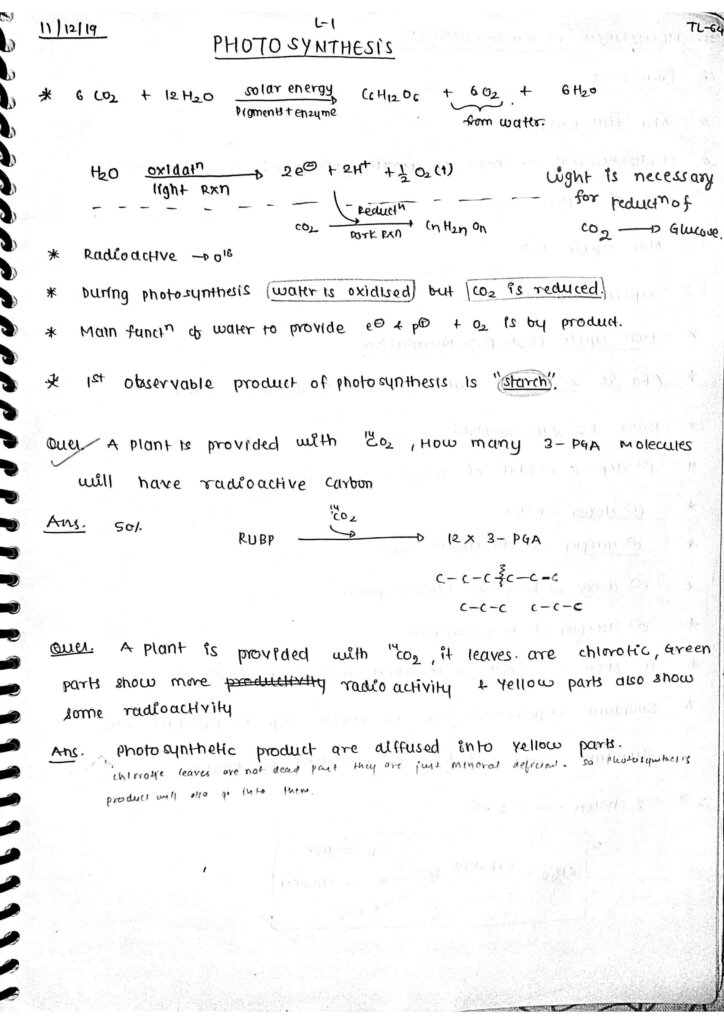 11/12/19
L-1
TL-64
PHOTOSYNTHESIS
* 6 CO2 + 12 H2O solar energy Pigments + enzyme → C6H12O6 + 6O2 + 6H2O
from water.
H2O oxidatn light Rxn → 2e⊖ + 2H+ + ½O2(↑)
Light is necessary
for reductn of
CO2 → Glucose.
CO2 Reductn Dark Rxn → CnH2nOn
* Radioactive → O18
* During photosynthesis water is oxidised but CO2 is reduced.
* Main functn of water to provide e⊖ & p⊕ + O2 is by product.
* 1st observable product of photosynthesis is "starch".
Ques. A plant is provided with 14CO2, How many 3-PGA Molecules
will have radioactive carbon
Ans. 50%
RUBP 14CO2 → 12 x 3-PGA
C-C-C C-C-C
C-C-C C-C-C
Ques. A plant is provided with 14CO2, it leaves. are chlorotic, Green
parts show more productivity radio activity & Yellow parts also show
some radioactivity
Ans. Photosynthetic product are diffused into Yellow parts.
chlorotic leaves are not dead part they are just mineral deficient. so photosynthesis
product will also go into them.